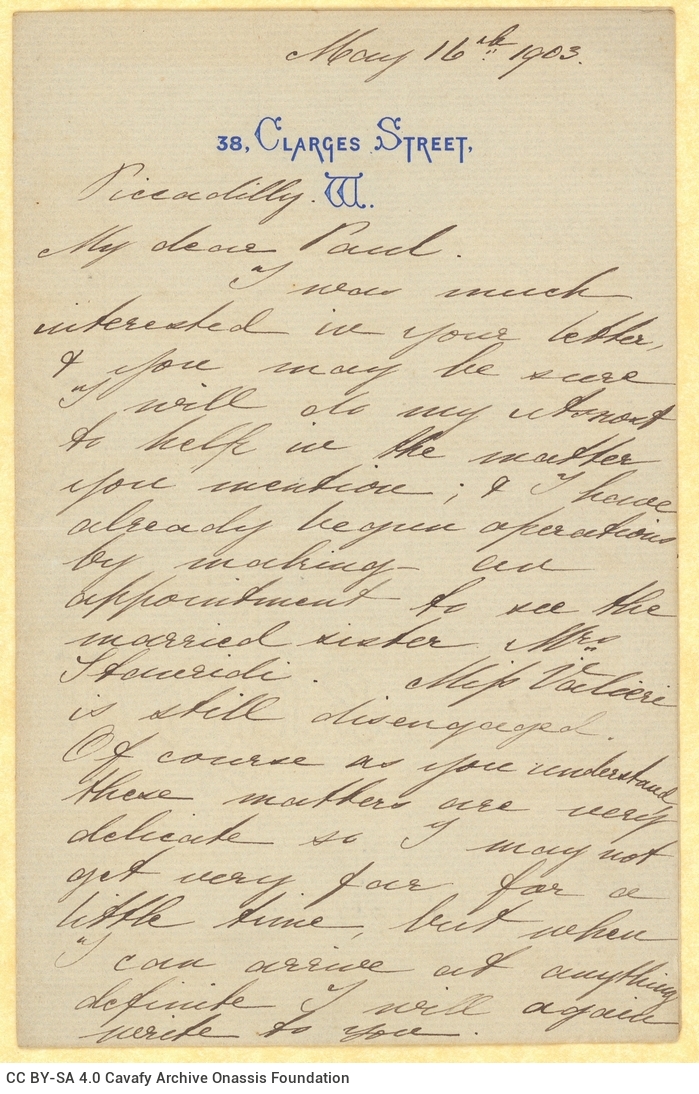 May 16th 1903.
38, CLARGES STREET,
Piccadilly. W.
My dear Paul.
I was much
interested in your letter,
& you may be sure
I will do my utmost
to help in the matter
you mention; & I have
already begun operations
by making an
appointment to see the
married sister Mrs
Stauridi. Miss Valieri
is still disengaged.
Of course as you understand
these matters are very
delicate so I may not
get very far for a
little time, but when
I can arrive at anything
definite I will again
write to you.
CC BY-SA 4.0 Cavafy Archive Onassis Foundation